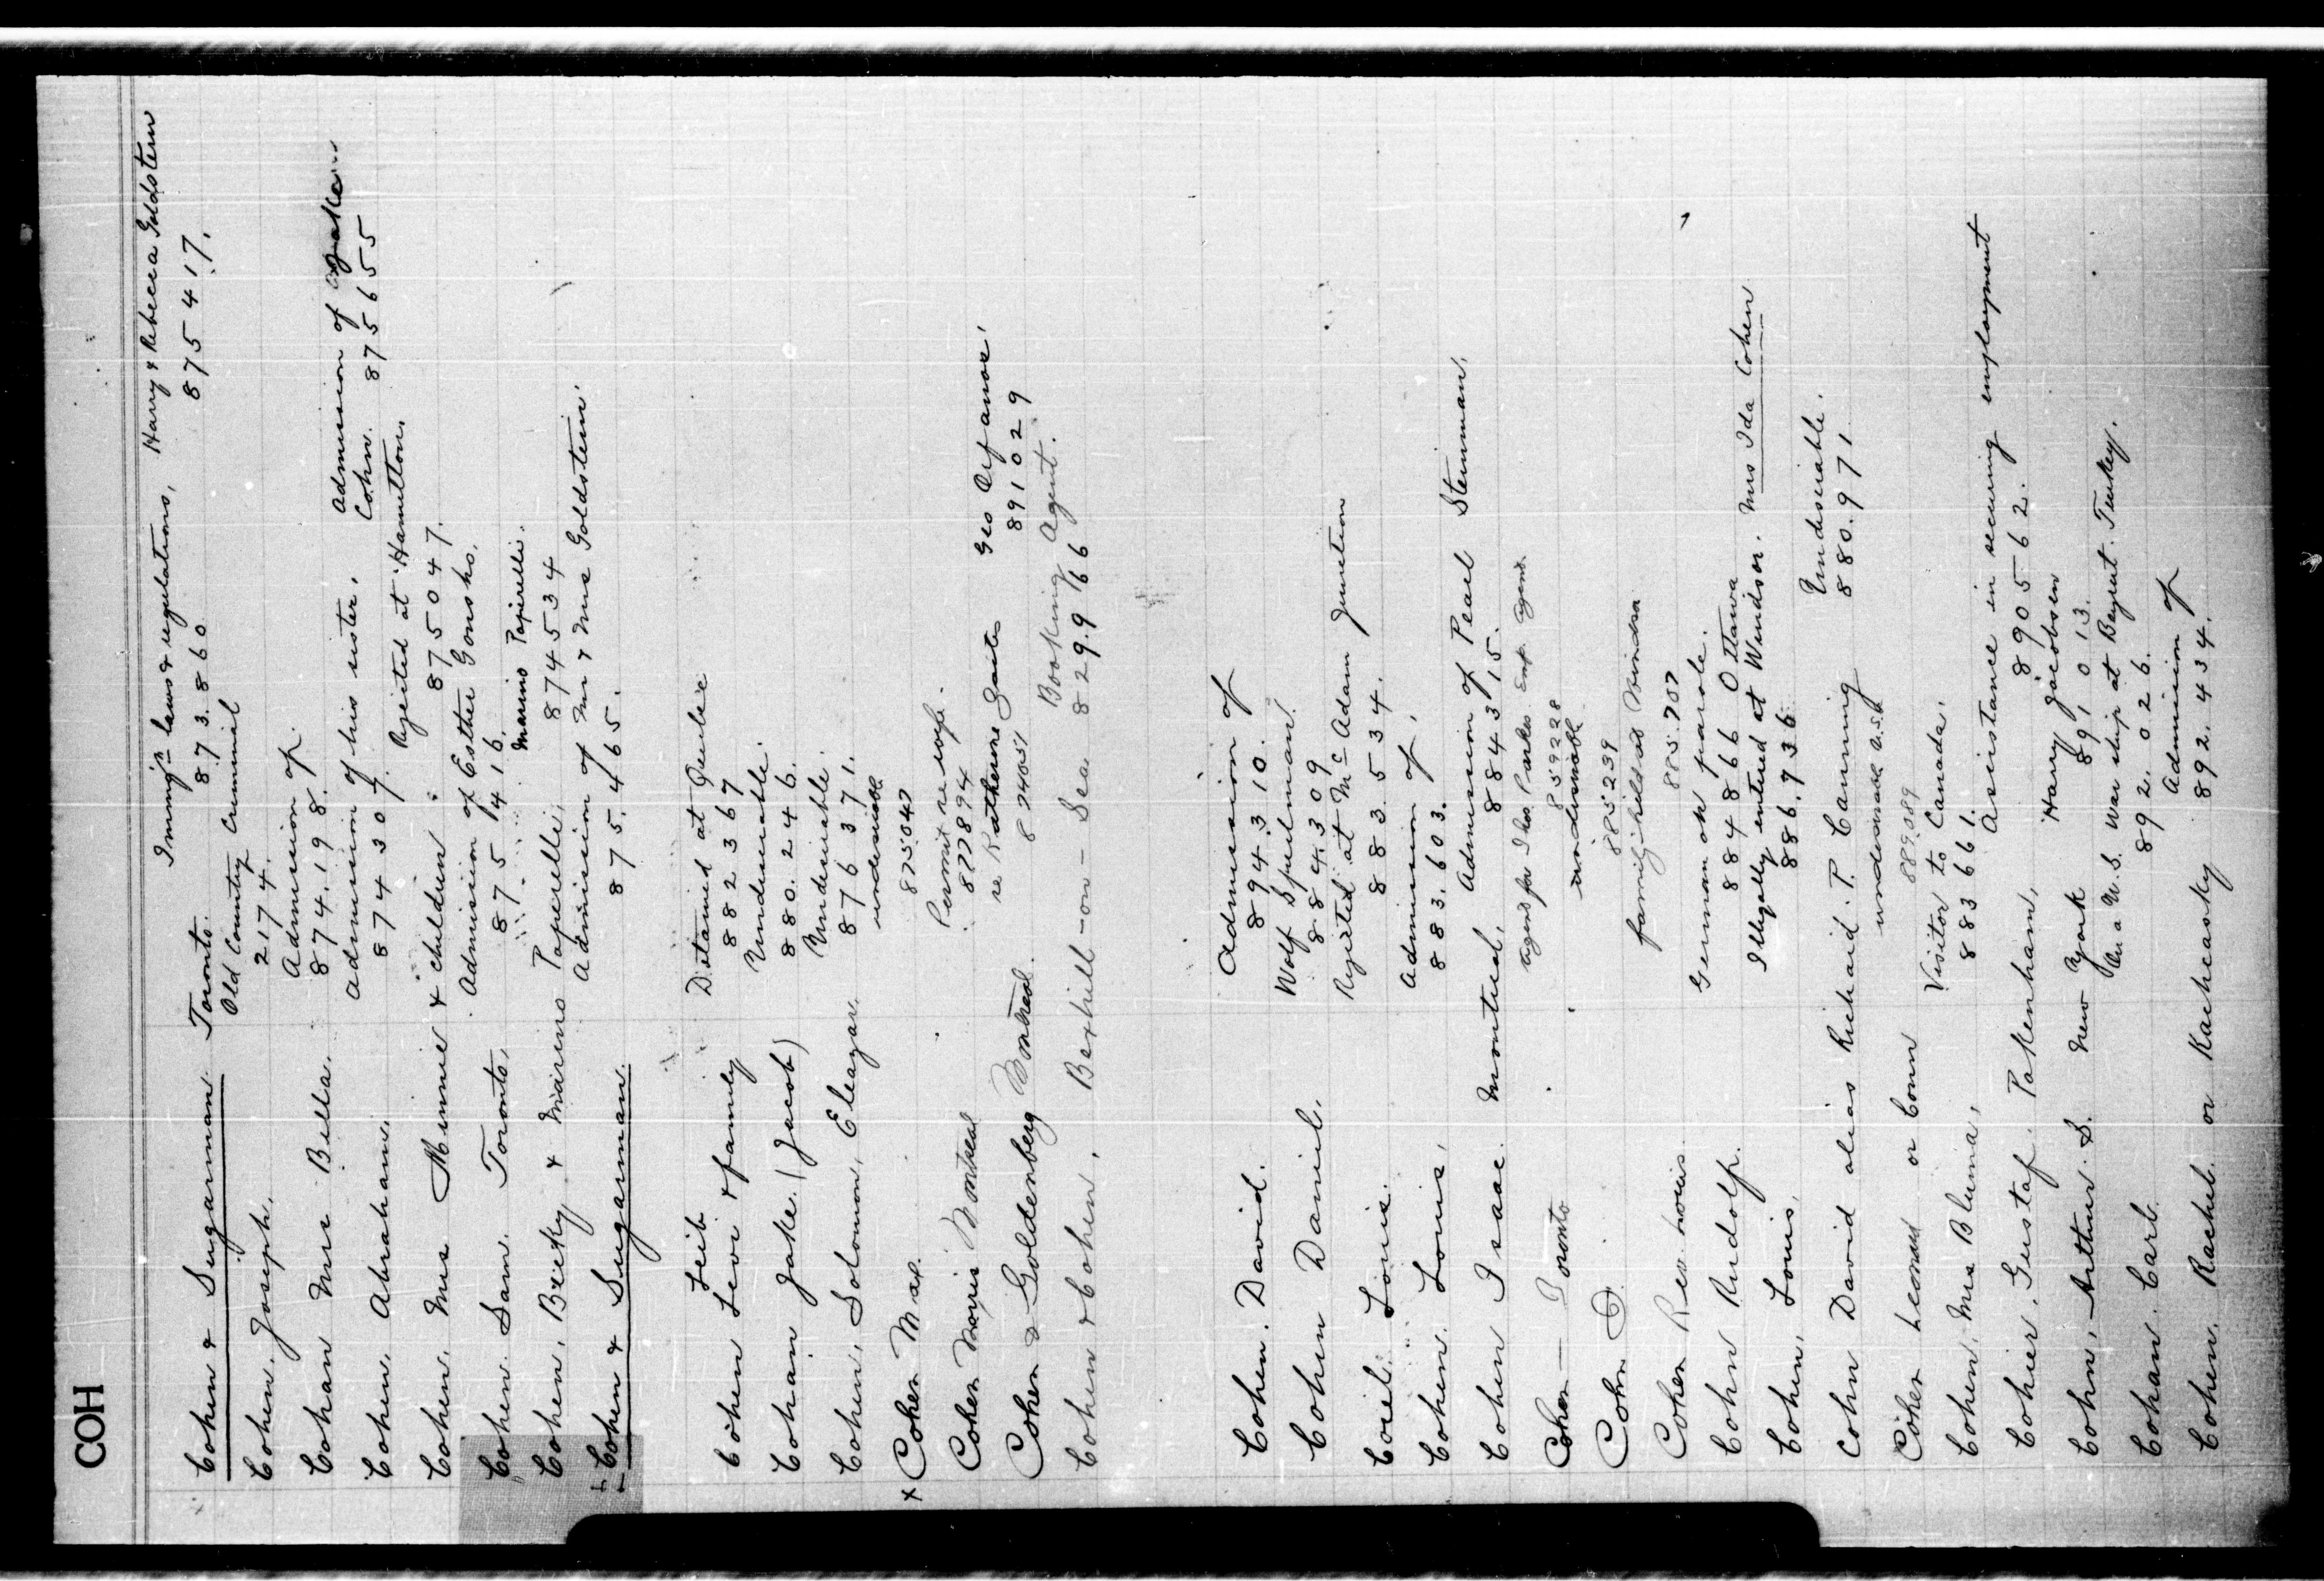 COH
Immig'n laws & regulations, Harry & Rebecca Goldstein
Cohen & Sugarman. Toronto. 873.860 875417.
Old Country Criminal
Cohen, Joseph, 2174.
Admission of
Cohan Mrs Bella. 874.198.
Admission of his sister, Admission of
Cohen, Abraham, 874307. Cohn. 875655
Rejected at Hamilton.
Cohen, Mrs Minnie & children. 875047.
Admission of Esther Gonsho.
Cohen. Sam. Toronto, 875416.
Marino Paperelli.
Cohen, Becky & Marino Paperelli, 874534
Admission of Mr & Mrs Goldstein.
Cohen & Sugarman. 875.465.
Leib Detained at Quebec
Cohen Levi & family 882367
Undesirable.
Cohain Jake. (Jacob) 880.246.
Undesirable.
Cohen, Solomon, Eleazar. 876371.
undesirable
x Cohen Max. 875047
Permit re wife.
Cohen Morris Montreal 872894
re Katherine Zaites Geo
Cohen & Goldenberg Montreal. 874051 891029
Booking Agent.
Cohen & Cohen, Bexhill-on-Sea 829.966
Admission of
Cohen. David. 894.310.
Wolf Spulman.
Cohen Daniel. 884309
Rejected at McAdam Junction
Louis. 883534.
Admission of,
Cohen. Louis, 883.603.
Admission of Pearl Steinman,
Cohen Isaac. Montreal, 884315.
agent for Thos Parker Emp. Agent.
Cohen — Toronto 859228
undesirable
Cohn D. 885239
family held at Windsor
Cohen Rev. Louis 885.707
German on parole.
Cohn Rudolf. 884866 Ottawa
Illegally entered at Windsor. Mrs Ida Cohen
Cohen, Louis, 886.736
Undesirable.
Cohn David alias Richard. P. Canning 880.971
undesirable U.S.A
Cohen Leonard or Conn 889.089
Visitor to Canada.
Cohen, Mrs Bluma, 883661.
Assistance in securing employment
Cohier, Gustaf. Pakenham, 890562.
Harry Jacobsen
Cohn, Arthur S. New York 891013.
On a U.S. War ship at Beyrut. Turkey.
Cohan. Carl. 892.026.
Admission of
Cohen. Rachel. or Kacheasky 892.434.